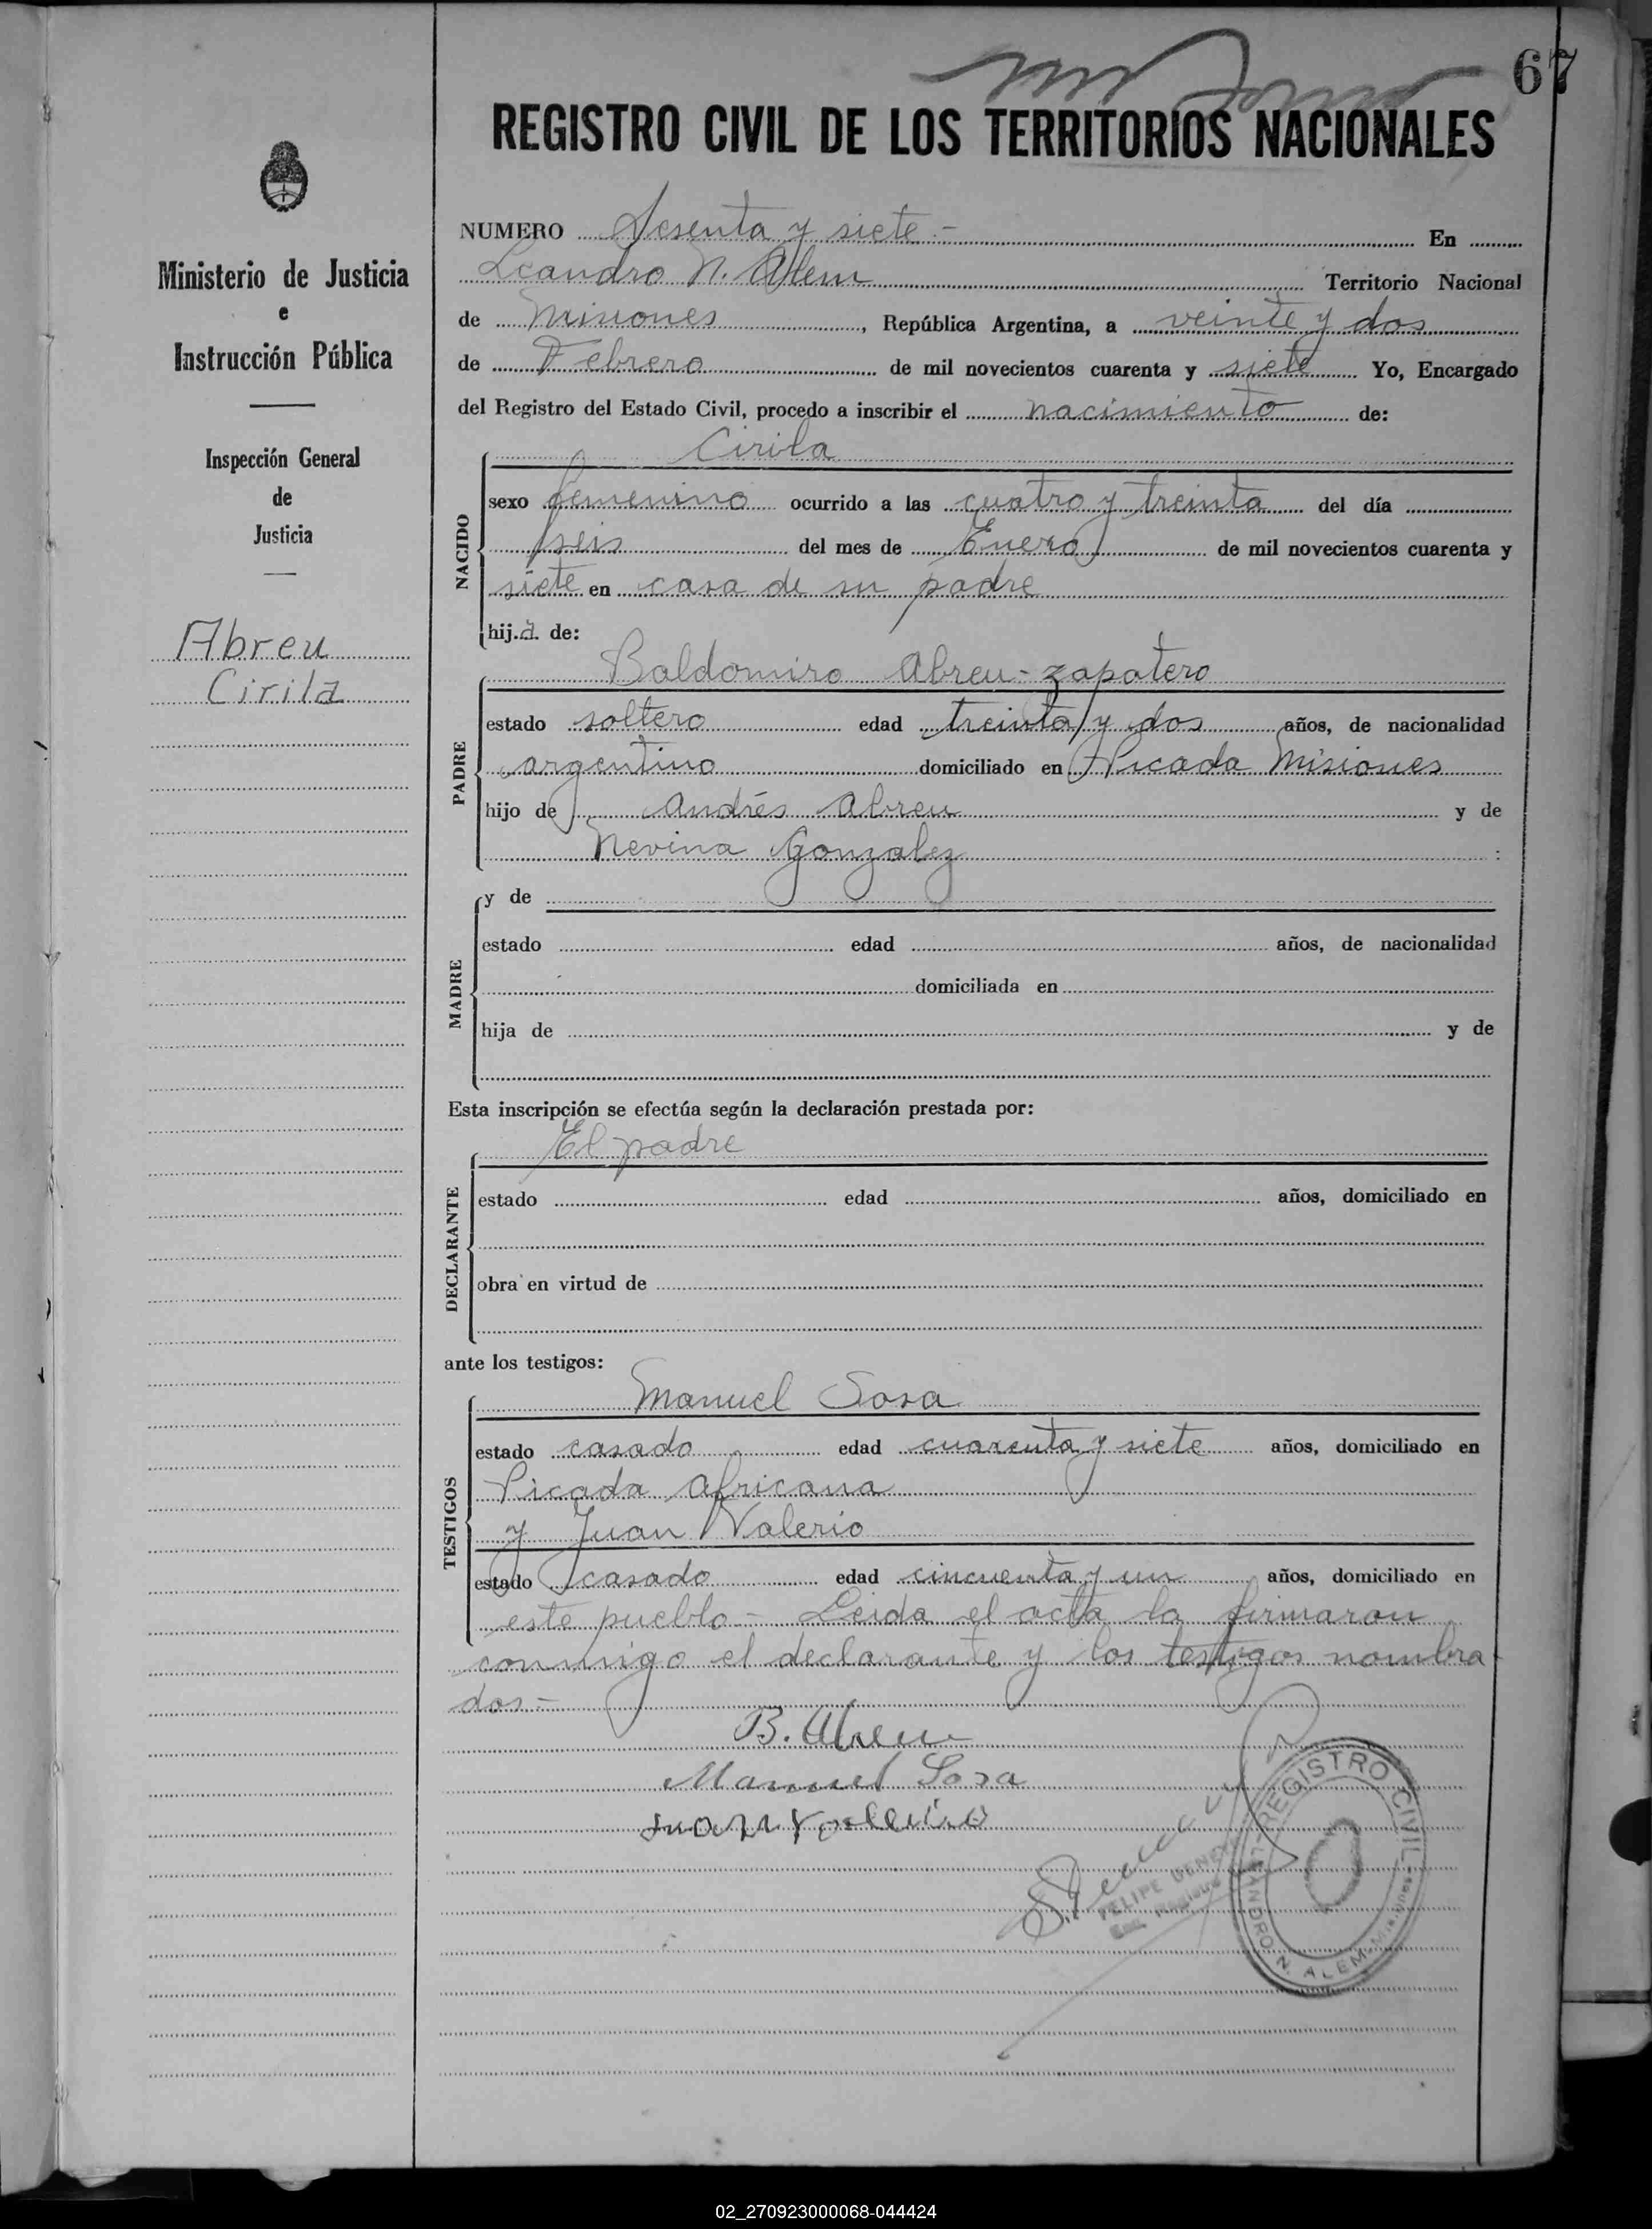 67
REGISTRO CIVIL DE LOS TERRITORIOS NACIONALES
Ministerio de Justicia
e
Instrucción Pública
Inspección General
de
Justicia
Abreu
Cirila
NUMERO Sesenta y siete.- En
Leandro N. Alem Territorio Nacional
de Misiones, República Argentina, a veinte y dos
de Febrero de mil novecientos cuarenta y siete Yo, Encargado
del Registro del Estado Civil, procedo a inscribir el nacimiento de:
Cirila
NACIDO
sexo femenino ocurrido a las cuatro y treinta del día
seis del mes de Enero de mil novecientos cuarenta y
siete en casa de su padre
hij.a. de:
Baldomiro Abreu - zapatero
PADRE
estado soltero edad treinta y dos años, de nacionalidad
argentino domiciliado en Picada Misiones
hijo de Andrés Abreu y de
Nevina Gonzalez
MADRE
y de
estado edad años, de nacionalidad
domiciliada en
hija de y de
Esta inscripción se efectúa según la declaración prestada por:
El padre
DECLARANTE
estado edad años, domiciliado en
obra en virtud de
ante los testigos:
Manuel Sosa
TESTIGOS
estado casado edad cuarenta y siete años, domiciliado en
Picada Africana
y Juan Valerio
estado casado edad cincuenta y un años, domiciliado en
este pueblo - Leida el acta la firmaron
conmigo el declarante y los testigos nombra
dos.-
B. Abreu
Manuel Sosa
Juan Valerio
FELIPE
REGISTRO CIVIL
LEANDRO N. ALEM - Misiones
02_270923000068-044424